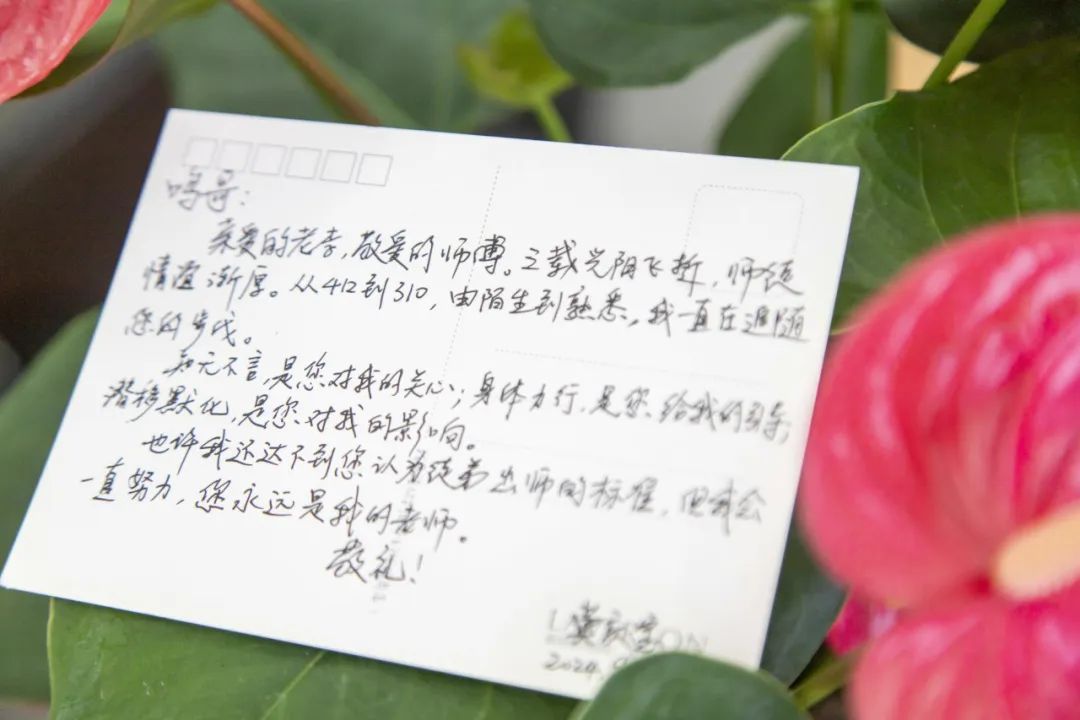 鸣哥:
亲爱的老李,敬爱的师傅。三载光阴飞逝,师徒
情谊渐厚。从412到310,由陌生到熟悉,我一直在追随
您的步伐。
知无不言,是您对我的关心;身体力行,是您给我的引导;
潜移默化,是您对我的影响向。
也许我还达不到您认为徒弟出师的标准,但我会
一直努力,您永远是我的老师。
敬礼!
2024.